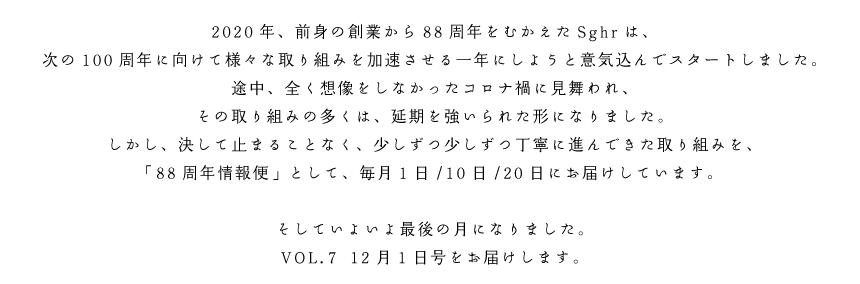 2020年、前身の創業から88周年をむかえたSghrは、
次の100周年に向けて様々な取り組みを加速させる一年にしようと意気込んでスタートしました。
途中、全く想像をしなかったコロナ禍に見舞われ、
その取り組みの多くは、延期を強いられた形になりました。
しかし、決して止まることなく、少しずつ少しずつ丁寧に進んできた取り組みを、
「88周年情報便」として、毎月1日/10日/20日にお届けしています。
そしていよいよ最後の月になりました。
VOL.7 12月1日号をお届けします。